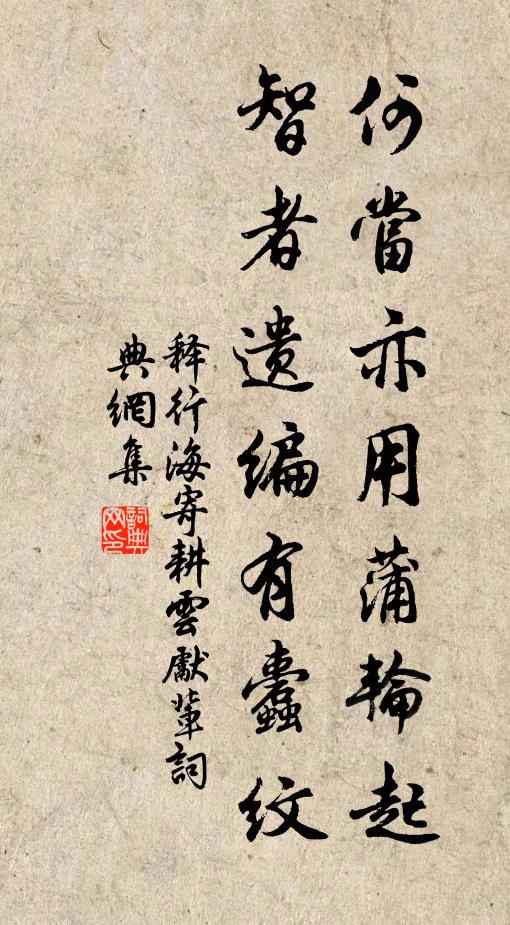 何當亦用蒲輪起
智者遺編有蠹紋
释行海寄耕雲獻輩詞
典網集
詞典网印